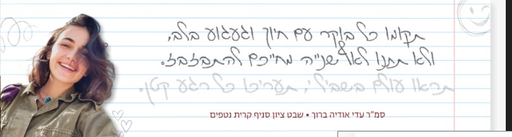 תקומו כל בוקר עם חיוך וגעגוע בלב,
ולא תתנו לאף שנייה מחייכם להתבזבז.
תראו עולם בשבילי, תעריכו כל רגע קטן.
סמ"ר עדי אודיה ברוך • שבט ציון סניף קרית נטפים